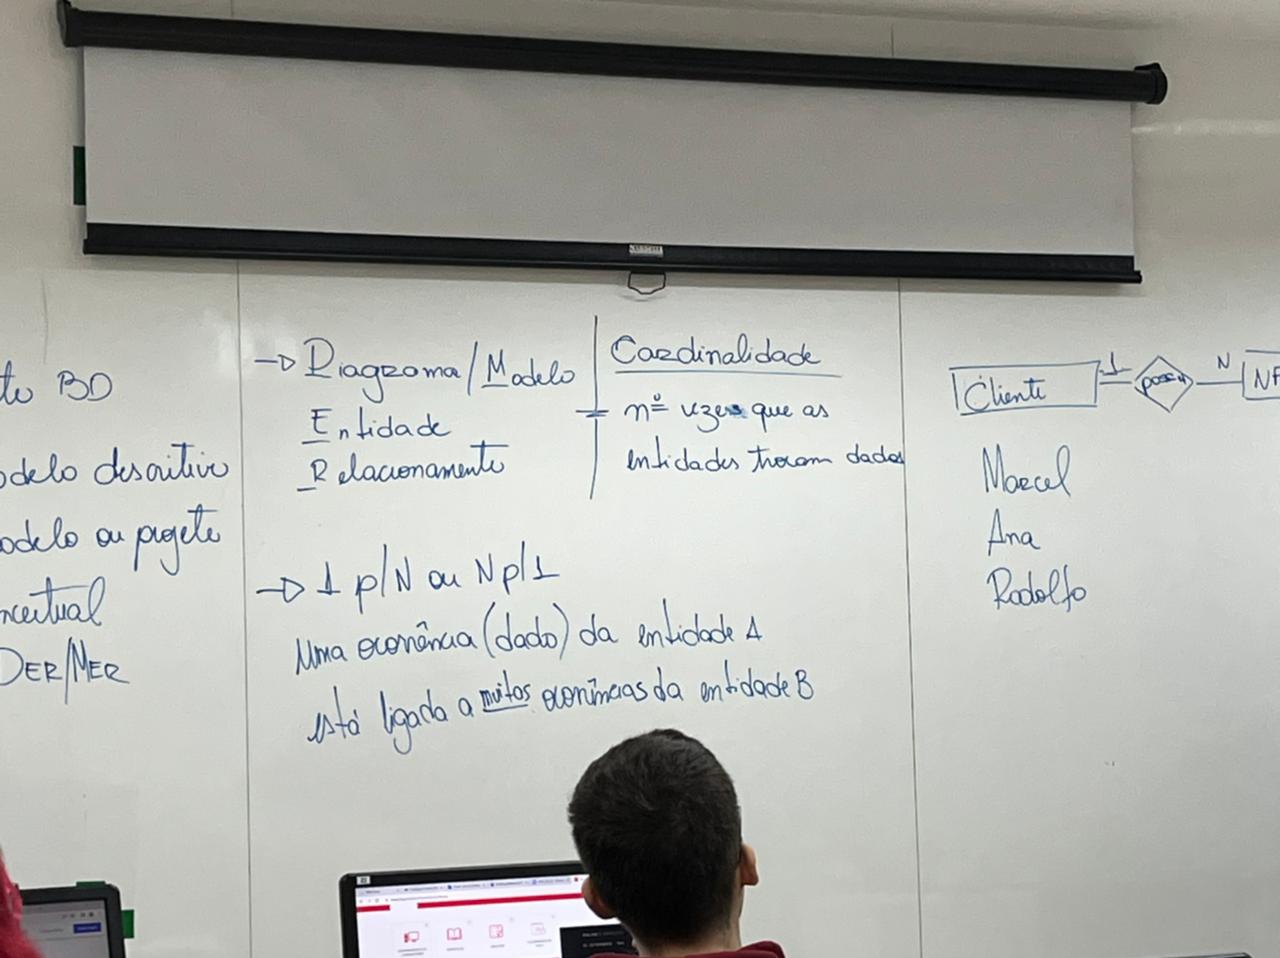 to BD
odelo descritivo
odelo ou projeto
nceitual
DER/MER
→ Diagrama/Modelo
Entidade
Relacionamento
Cardinalidade
nº vezes que as
entidades trocam dados
→ 1 p/N ou N p/1
Uma ocorrência (dado) da entidade A
está ligada a muitos ocorrências da entidade B
Cliente 1 possui N NF
Marcel
Ana
Rodolfo